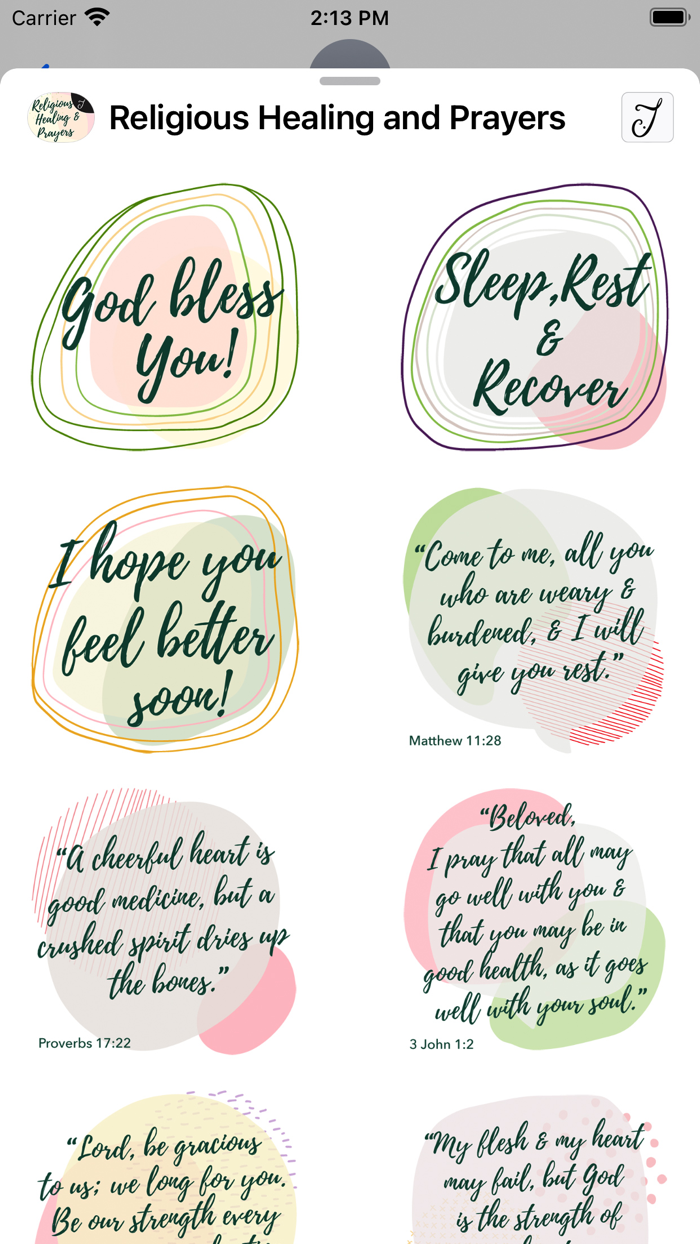 Carrier
2:13 PM
Religious
Healing &
Prayers
J
Religious Healing and Prayers
God bless
You!
Sleep, Rest
&
Recover
I hope you
feel better
soon!
“Come to me, all you
who are weary &
burdened, & I will
give you rest.”
Matthew 11:28
“A cheerful heart is
good medicine, but a
crushed spirit dries up
the bones.”
Proverbs 17:22
“Beloved,
I pray that all may
go well with you &
that you may be in
good health, as it goes
well with your soul.”
3 John 1:2
“Lord, be gracious
to us; we long for you.
Be our strength every
“My flesh & my heart
may fail, but God
is the strength of